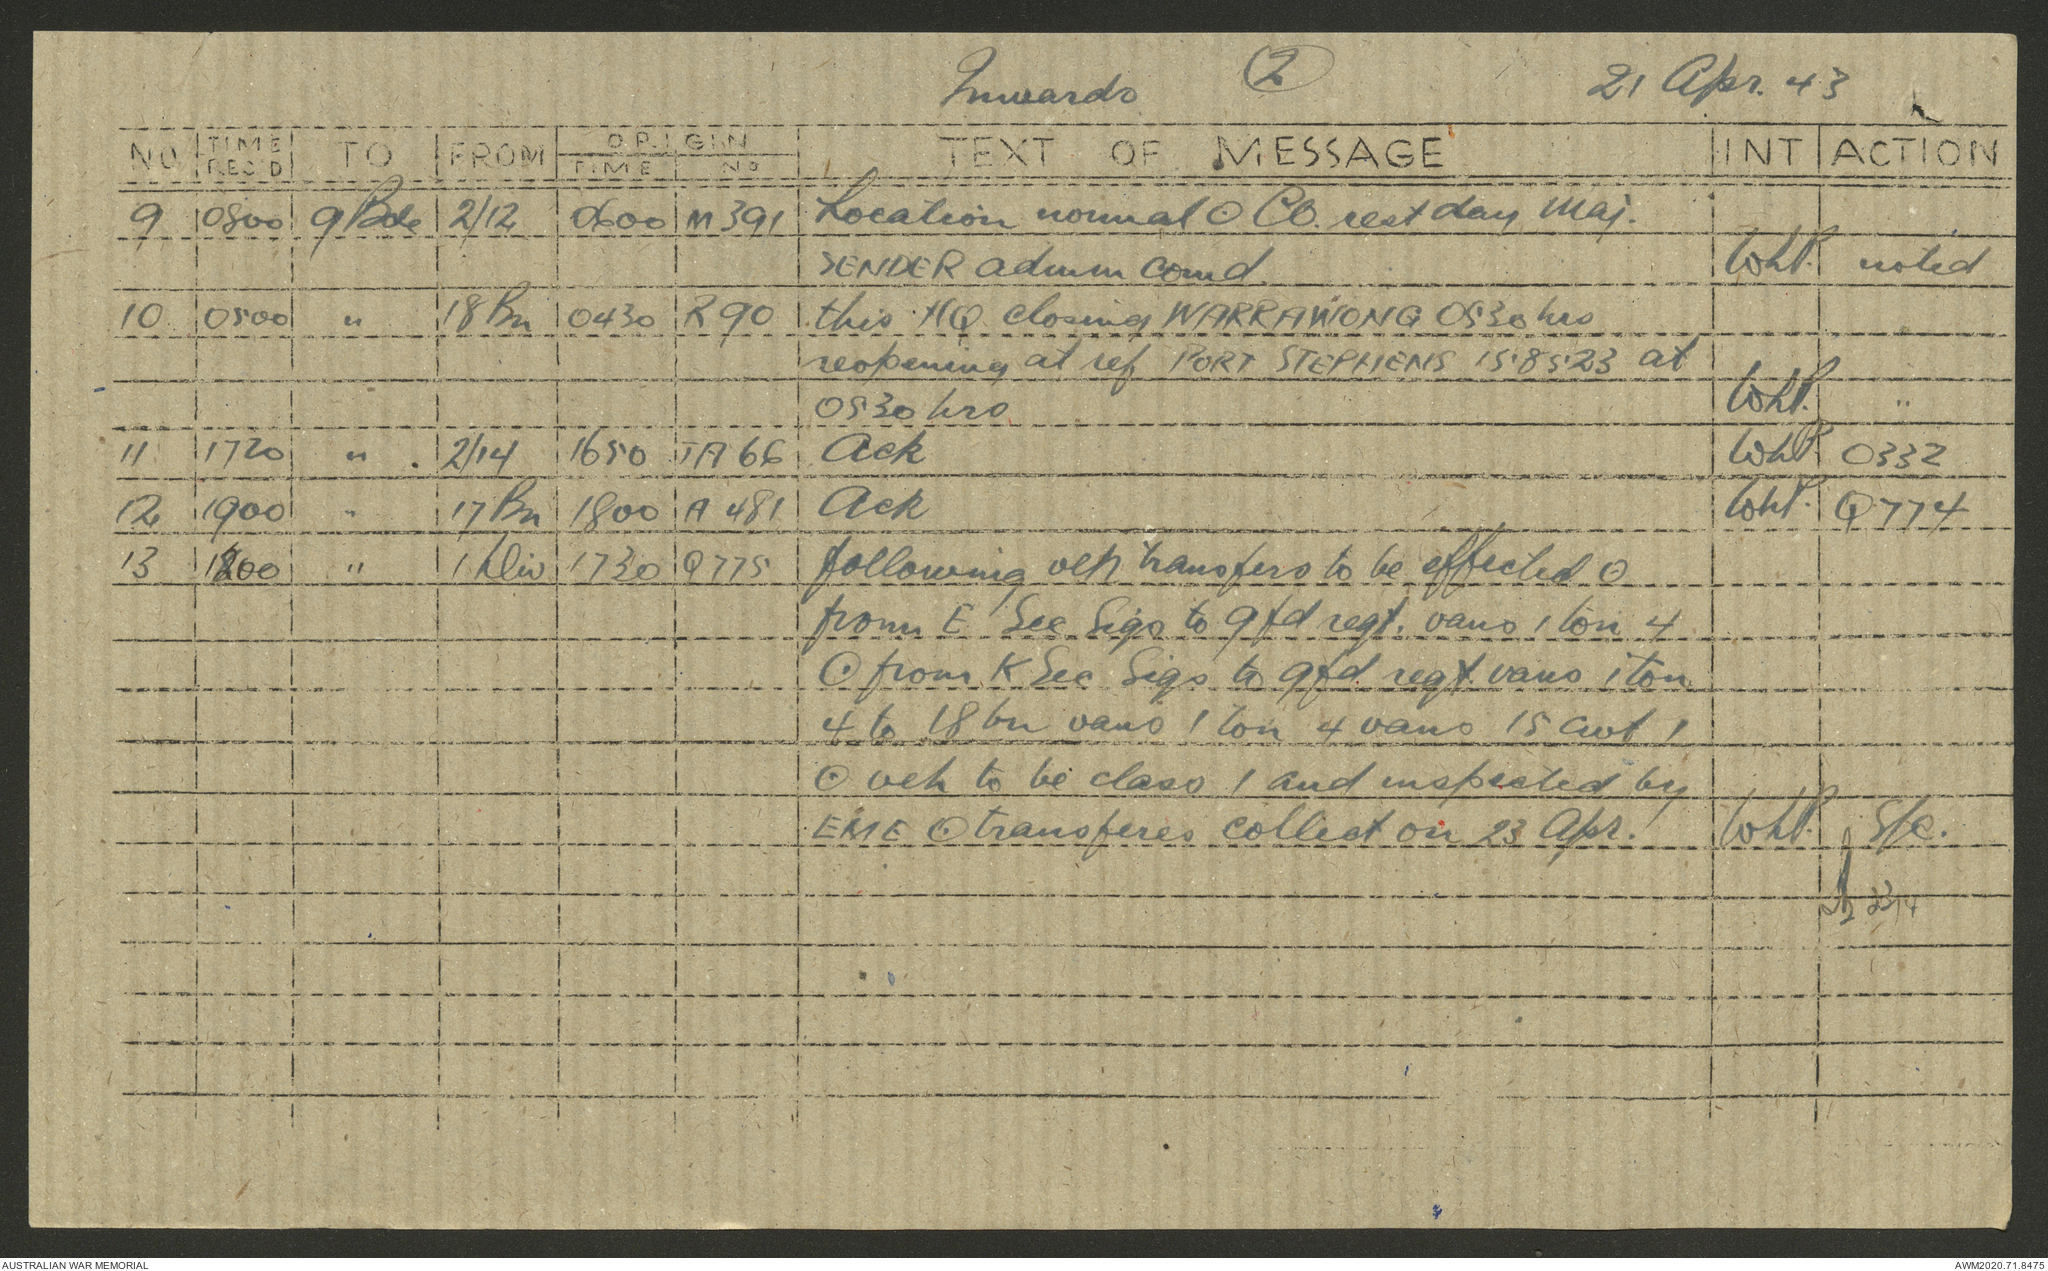 Inwards (2) 21 Apr. 43
NO TIME REC'D TO FROM ORIGIN TIME NO TEXT OF MESSAGE INT ACTION
9 0800 9 Bde 2/12 0600 M391 Location normal ⊙ CO. rest day Maj.
SENDER admin comd. WhP. noted
10 0500 " 18 Bn 0430 R90 this HQ closing WARRAWONG 0530 hrs
reopening at ref PORT STEPHENS 158523 at
0530 hrs WhP. "
11 1720 " 2/14 1650 TA66 Ack WhP. 0332
12 1900 " 17 Bn 1800 A481 Ack WhP. Q774
13 1800 " 1 Div 1730 Q775 following veh transfers to be effected ⊙
from E Sec Sigs to 9 fd regt. vans 1 ton 4
⊙ from K Sec Sigs to 9 fd regt vans 1 ton
4 to 18 bn vans 1 ton 4 vans 15 cwt 1
⊙ veh to be class 1 and inspected by
EME ⊙ transferes collect on 23 Apr. WhP. S/c.
AUSTRALIAN WAR MEMORIAL AWM2020.71.8475